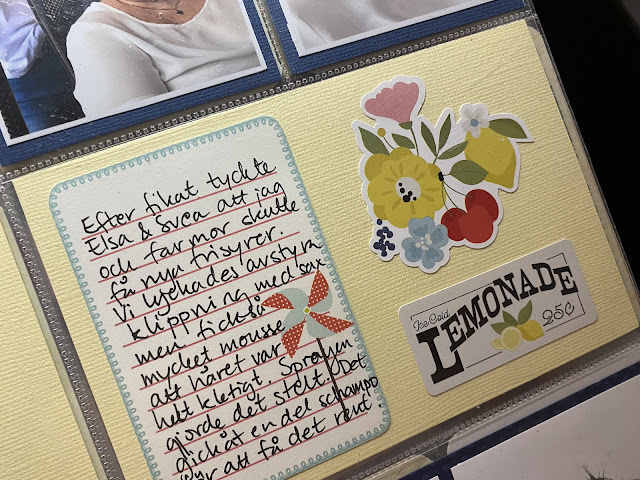 Efter fikat tyckte
Elsa & Svea att jag
och farmor skulle
få nya frisyrer.
Vi lyckades avstyra
klippning med sax
men fick så
mycket mousse
att håret var
helt kletigt. Sprayen
gjorde det stelt. Det
gick åt en del schampo
för att få det rent.
Ice Cold
LEMONADE
25¢